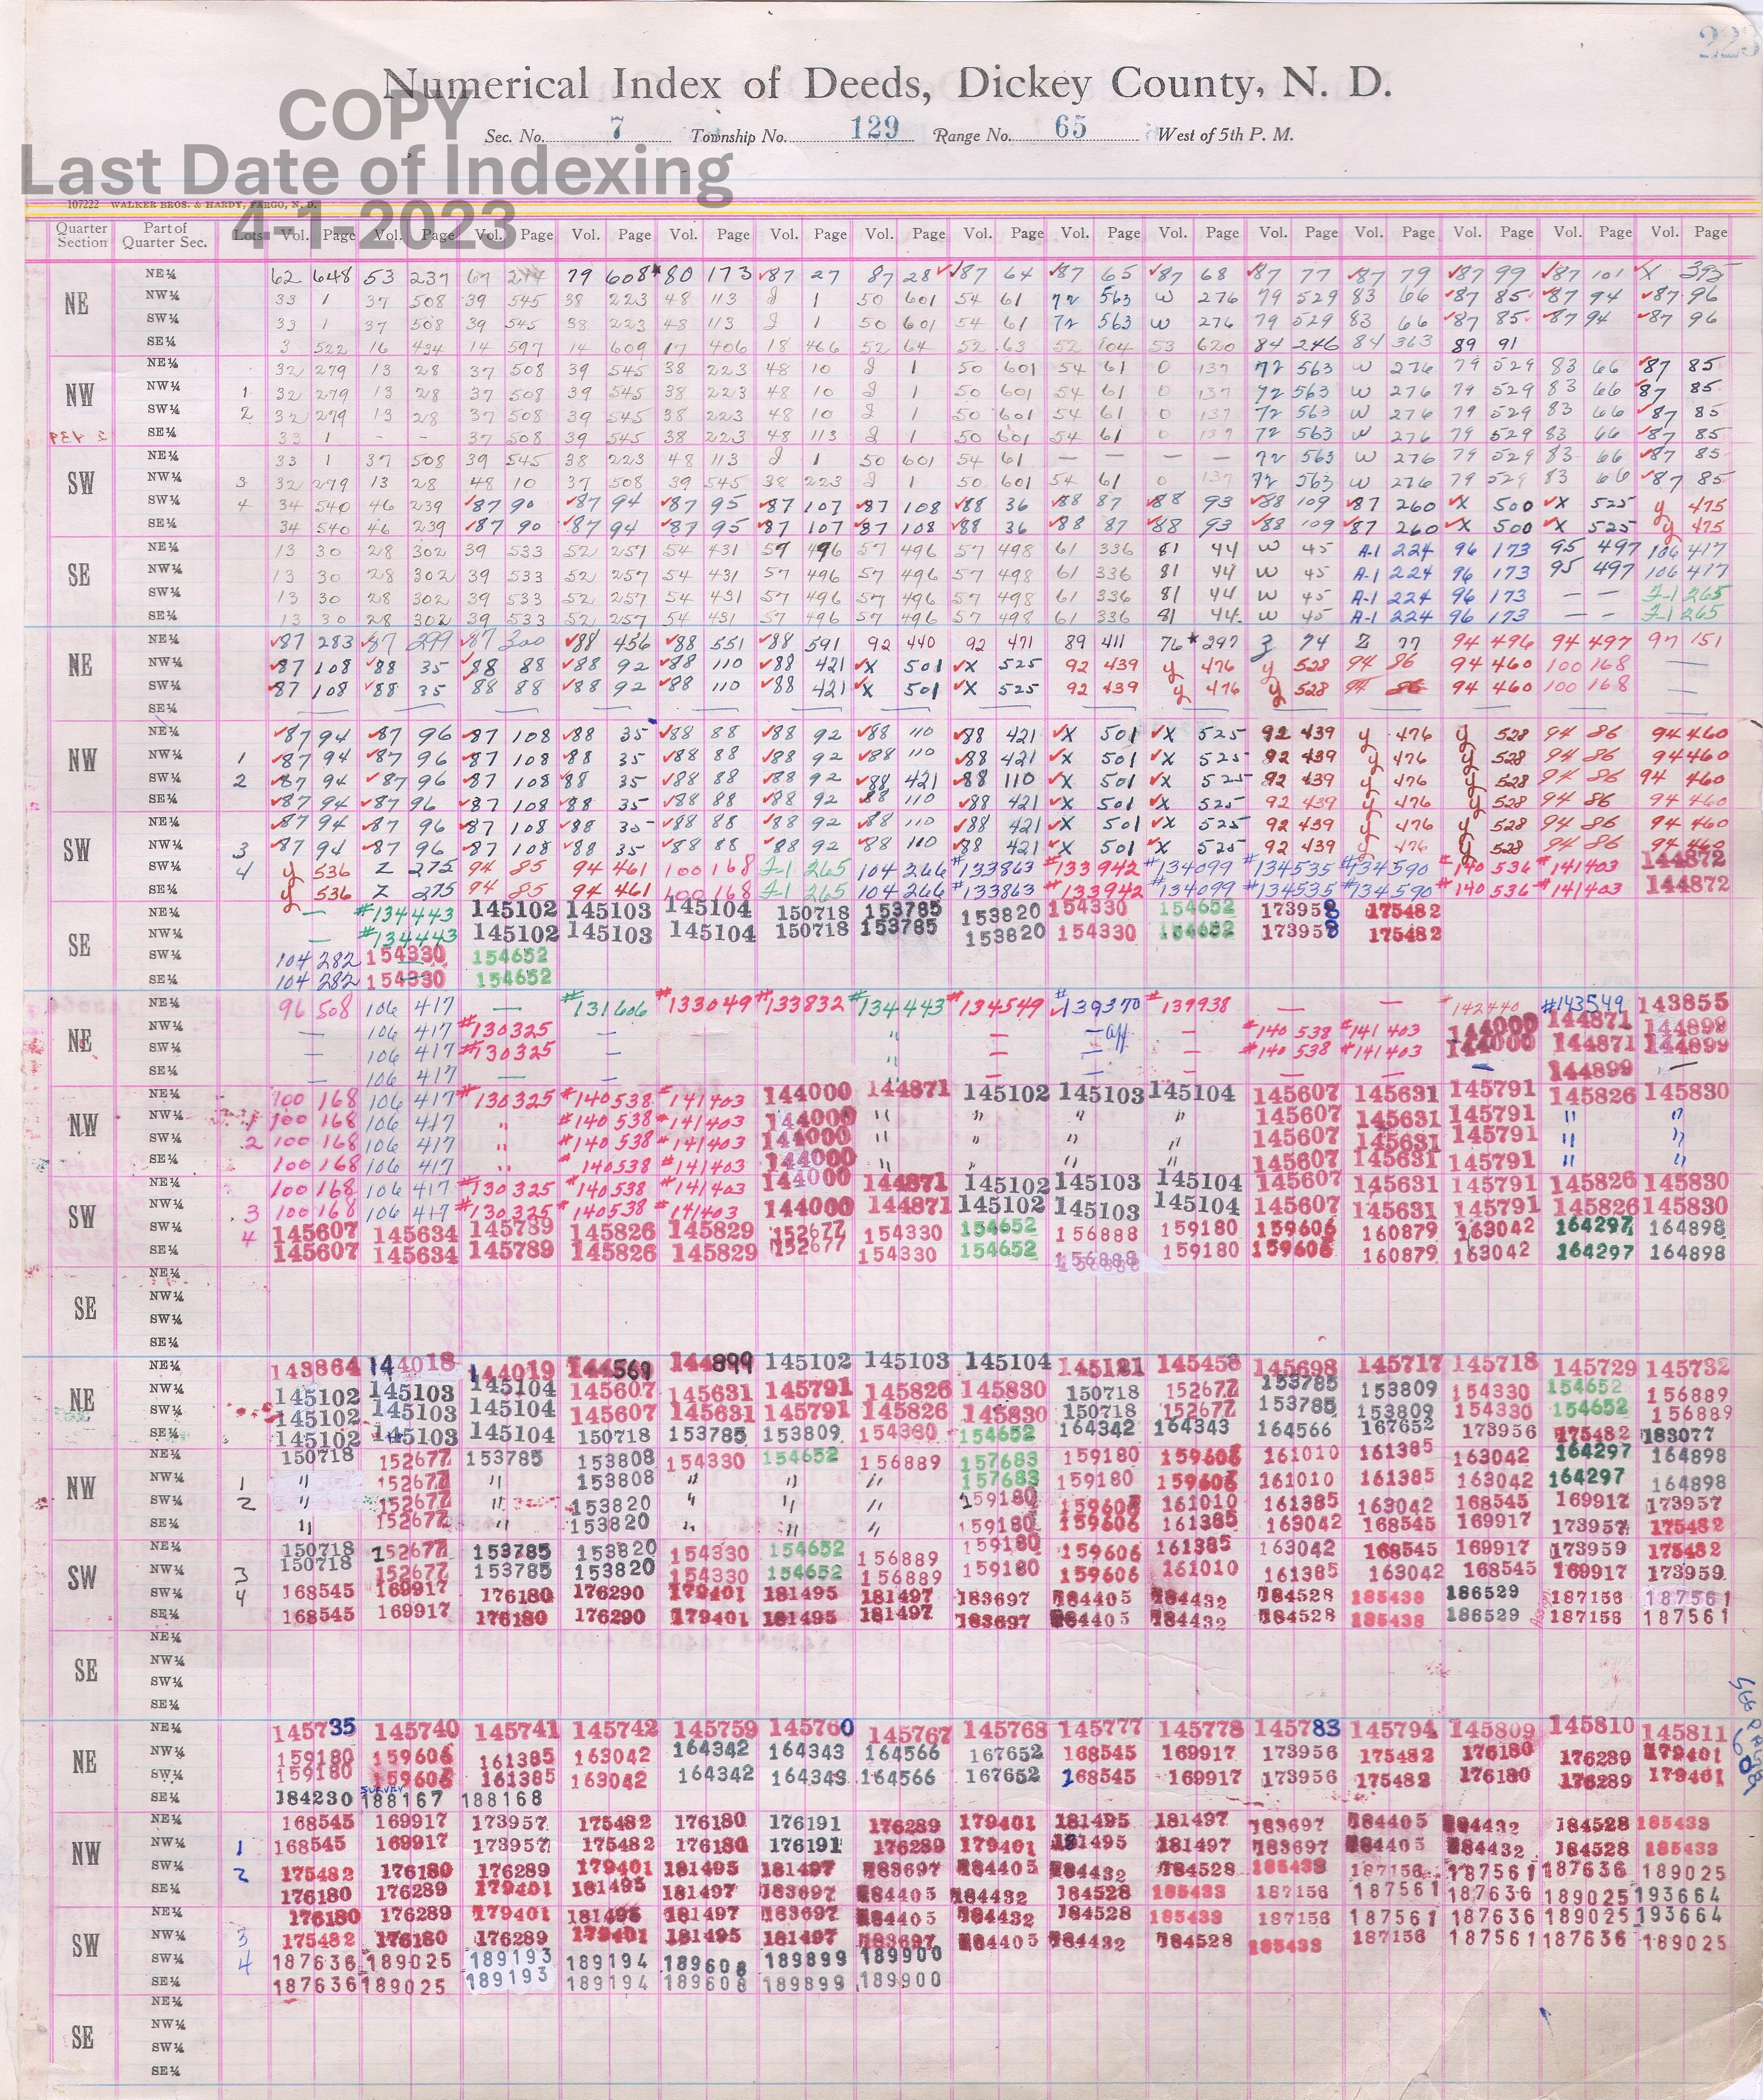 223
Numerical Index of Deeds, Dickey County, N. D.
COPY
Sec. No. 7 Township No. 129 Range No. 65 West of 5th P. M.
Last Date of Indexing
107222 WALKER BROS. & HARDY, FARGO, N. D.
4-1-2023
Quarter Section Part of Quarter Sec. Lots Vol. Page Vol. Page Vol. Page Vol. Page Vol. Page Vol. Page Vol. Page Vol. Page Vol. Page Vol. Page Vol. Page Vol. Page Vol. Page Vol. Page Vol. Page
NE NE¼ 62 648 53 237 79 608 80 173 87 27 87 28 87 64 87 65 87 68 87 77 87 79 87 99 87 101 X 395
NW¼ 33 1 37 508 39 545 38 223 48 113 J 1 50 601 54 61 72 563 W 276 79 529 83 66 87 85 87 94 87 96
SW¼ 33 1 37 508 39 545 38 223 48 113 J 1 50 601 54 61 72 563 W 276 79 529 83 66 87 85 87 94 87 96
SE¼ 3 522 16 434 14 597 14 609 17 406 18 466 52 64 52 63 52 104 53 620 84 246 84 363 89 91
NW NE¼ 32 279 13 28 37 508 39 545 38 223 48 10 J 1 50 601 54 61 O 137 72 563 W 276 79 529 83 66 87 85
NW¼ 1 32 279 13 28 37 508 39 545 38 223 48 10 J 1 50 601 54 61 O 137 72 563 W 276 79 529 83 66 87 85
SW¼ 2 32 279 13 28 37 508 39 545 38 223 48 10 J 1 50 601 54 61 O 137 72 563 W 276 79 529 83 66 87 85
SE¼ 33 1 - - 37 508 39 545 38 223 48 113 J 1 50 601 54 61 O 137 72 563 W 276 79 529 83 66 87 85
SW NE¼ 33 1 37 508 39 545 38 223 48 113 J 1 50 601 54 61 — — — — 72 563 W 276 79 529 83 66 87 85
NW¼ 3 32 279 13 28 48 10 37 508 39 545 38 223 J 1 50 601 54 61 O 137 72 563 W 276 79 529 83 66 87 85
SW¼ 4 34 540 46 239 87 90 87 94 87 95 87 107 87 108 88 36 88 87 88 93 88 109 87 260 X 500 X 525 y 475
SE¼ 34 540 46 239 87 90 87 94 87 95 87 107 87 108 88 36 88 87 88 93 88 109 87 260 X 500 X 525 y 475
SE NE¼ 13 30 28 302 39 533 52 257 54 431 57 496 57 496 57 498 61 336 81 44 W 45 A-1 224 96 173 95 497 106 417
NW¼ 13 30 28 302 39 533 52 257 54 431 57 496 57 496 57 498 61 336 81 44 W 45 A-1 224 96 173 95 497 106 417
SW¼ 13 30 28 302 39 533 52 257 54 431 57 496 57 496 57 498 61 336 81 44 W 45 A-1 224 96 173 — — F-1 265
SE¼ 13 30 28 302 39 533 52 257 54 431 57 496 57 496 57 498 61 336 81 44 W 45 A-1 224 96 173 — — F-1 265
NE NE¼ 87 283 87 299 87 300 88 456 88 551 88 591 92 440 92 471 89 411 76 297 Z 74 Z 77 94 496 94 497 97 151
NW¼ 87 108 88 35 88 88 88 92 88 110 88 421 X 501 X 525 92 439 y 476 y 528 94 86 94 460 100 168 —
SW¼ 87 108 88 35 88 88 88 92 88 110 88 421 X 501 X 525 92 439 y 476 y 528 94 86 94 460 100 168 —
SE¼ — — — — — — — — — — — — — —
NW NE¼ 87 94 87 96 87 108 88 35 88 88 88 92 88 110 88 421 X 501 X 525 92 439 y 476 y 528 94 86 94 460
NW¼ 1 87 94 87 96 87 108 88 35 88 88 88 92 88 110 88 421 X 501 X 525 92 439 y 476 y 528 94 86 94 460
SW¼ 2 87 94 87 96 87 108 88 35 88 88 88 92 88 421 88 110 X 501 X 525 92 439 y 476 y 528 94 86 94 460
SE¼ 87 94 87 96 87 108 88 35 88 88 88 92 88 110 88 421 X 501 X 525 92 439 y 476 y 528 94 86 94 460
SW NE¼ 87 94 87 96 87 108 88 35 88 88 88 92 88 110 88 421 X 501 X 525 92 439 y 476 y 528 94 86 94 460
NW¼ 3 87 94 87 96 87 108 88 35 88 88 88 92 88 110 88 421 X 501 X 525 92 439 y 476 y 528 94 86 94 460
SW¼ 4 y 536 Z 275 94 85 94 461 100 168 F-1 265 104 266 #133863 #133942 #134099 #134535 #134590 #140536 #141403 144872
SE¼ y 536 Z 275 94 85 94 461 100 168 F-1 265 104 266 #133863 #133942 #134099 #134535 #134590 #140536 #141403 144872
SE NE¼ — #134443 145102 145103 145104 150718 153785 153820 154330 154652 173958 175482
NW¼ — #134443 145102 145103 145104 150718 153785 153820 154330 154652 173958 175482
SW¼ 104 282 154330 154652
SE¼ 104 282 154330 154652
NE NE¼ 96 508 106 417 — #131606 #133049 #133832 #134443 #134549 #139370 #139938 — — #142440 #143549 143855
NW¼ — 106 417 #130325 — " — — aff — #140538 #141403 144000 144871 144899
SW¼ — 106 417 #130325 — " — — — #140538 #141403 144000 144871 144899
SE¼ — 106 417 — — " — — — — — — 144899 —
NW NE¼ 100 168 106 417 #130325 #140538 #141403 144000 144871 145102 145103 145104 145607 145631 145791 145826 145830
NW¼ 1 100 168 106 417 " #140538 #141403 144000 " " " " 145607 145631 145791 " "
SW¼ 2 100 168 106 417 " #140538 #141403 144000 " " " " 145607 145631 145791 " "
SE¼ 100 168 106 417 " #140538 #141403 144000 " " " " 145607 145631 145791 " "
SW NE¼ 100 168 106 417 #130325 #140538 #141403 144000 144871 145102 145103 145104 145607 145631 145791 145826 145830
NW¼ 3 100 168 106 417 #130325 #140538 #141403 144000 144871 145102 145103 145104 145607 145631 145791 145826 145830
SW¼ 4 145607 145634 145789 145826 145829 152677 154330 154652 156888 159180 159606 160879 163042 164297 164898
SE¼ 145607 145634 145789 145826 145829 152677 154330 154652 156888 159180 159606 160879 163042 164297 164898
SE NE¼
NW¼
SW¼
SE¼
NE NE¼ 143864 144018 144019 144569 144899 145102 145103 145104 145121 145458 145698 145717 145718 145729 145732
NW¼ 145102 145103 145104 145607 145631 145791 145826 145830 150718 152677 153785 153809 154330 154652 156889
SW¼ 145102 145103 145104 145607 145631 145791 145826 145830 150718 152677 153785 153809 154330 154652 156889
SE¼ 145102 145103 145104 150718 153785 153809 154330 154652 164342 164343 164566 167652 173956 175482 183077
NW NE¼ 150718 152677 153785 153808 154330 154652 156889 157683 159180 159606 161010 161385 163042 164297 164898
NW¼ 1 " 152677 " 153808 " " " 157683 159180 159606 161010 161385 163042 164297 164898
SW¼ 2 " 152677 " 153820 " " " 159180 159606 161010 161385 163042 168545 169917 173957
SE¼ " 152677 " 153820 " " " 159180 159606 161385 163042 168545 169917 173957 175482
SW NE¼ 150718 152677 153785 153820 154330 154652 156889 159180 159606 161385 163042 168545 169917 173959 175482
NW¼ 3 150718 152677 153785 153820 154330 154652 156889 159180 159606 161010 161385 163042 168545 169917 173959
SW¼ 4 168545 169917 176180 176290 179401 181495 181497 183697 184405 184432 184528 185438 186529 187156 187561
SE¼ 168545 169917 176180 176290 179401 181495 181497 183697 184405 184432 184528 185438 186529 187156 187561
SE NE¼
NW¼
SW¼
SE¼
NE NE¼ 145735 145740 145741 145742 145759 145760 145767 145768 145777 145778 145783 145794 145809 145810 145811
NW¼ 159180 159606 161385 163042 164342 164343 164566 167652 168545 169917 173956 175482 176180 176289 179401
SW¼ 159180 159606 161385 163042 164342 164343 164566 167652 168545 169917 173956 175482 176180 176289 179401
SURVEY
SE¼ 184230 188167 188168
NW NE¼ 168545 169917 173957 175482 176180 176191 176289 179401 181495 181497 183697 184405 184432 184528 185438
NW¼ 1 168545 169917 173957 175482 176180 176191 176289 179401 181495 181497 183697 184405 184432 184528 185438
SW¼ 2 175482 176180 176289 179401 181495 181497 183697 184405 184432 184528 185438 187156 187561 187636 189025
SE¼ 176180 176289 179401 181495 181497 183697 184405 184432 184528 185438 187156 187561 187636 189025 193664
SW NE¼ 176180 176289 179401 181495 181497 183697 184405 184432 184528 185438 187156 187561 187636 189025 193664
NW¼ 3 175482 176180 176289 179401 181495 181497 183697 184405 184432 184528 185438 187156 187561 187636 189025
SW¼ 4 187636 189025 189193 189194 189608 189899 189900
SE¼ 187636 189025 189193 189194 189608 189899 189900
SE NE¼
NW¼
SW¼
SE¼